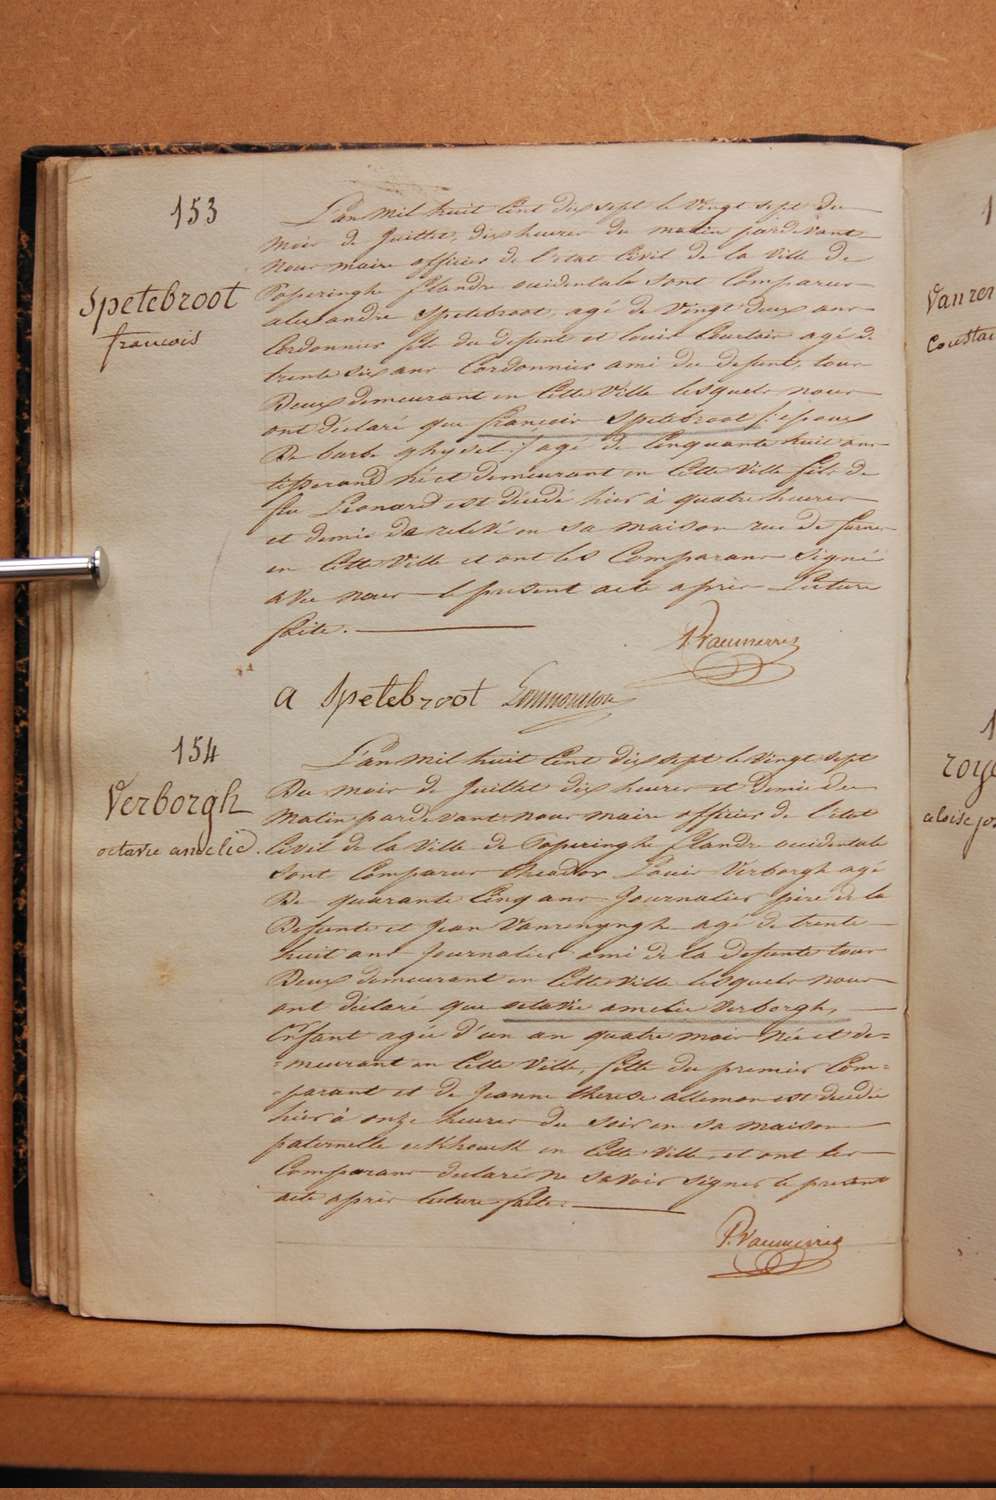 153
Spetebroot
francois
L'an Mil huit Cent dix sept le Vingt sept du
Mois de Juillet, dix heures du matin pardevant
Nous maire officier de l'etat Civil de la Ville de
Poperinghe flandre occidentale sont Comparus
alexandre Spetebroot, agé de Vingt deux ans
Cordonnier fils du defunt et louis Courtois agé de
trente six ans Cordonnier ami du defunt, tous
Deux demeurant en Cette Ville lesquels nous
ont déclaré que françois Spetebroot /: epoux
De barbe ghyselt :/ agé de Cinquante huit ans
tisserand né et demeurant en Cette Ville fils de
feu Léonard est décédé hier à quatre heures
et demie de relevé en sa maison rue de furnes
en Cette Ville et ont les Comparans Signé
avec nous le present acte après Lecture
faite.
P. Vanmerris
a Spetebroot
154
Verborgh
octavie amelie.
L'an Mil huit Cent dix sept le Vingt sept
Du mois de Juillet dix heures et Demie du
Matin pardevant nous maire officier de l'etat
Civil de la Ville de Poperinghe flandre occidentale
Sont Comparus theodor Louis Verborgh agé
De quarante Cinq ans Journalier père de la
Defunte et Jean Vanrenynghe agé de trente
huit ans Journalier ami de la defunte tous
Deux demeurant en Cette Ville lesquels nous
ont déclaré que octavie amelie Verborgh,
Enfant agée d'un an quatre mois Née et de=
=meurant en Cette Ville, fille du premier Com=
=parant et de Jeanne therese alleman est decedée
hier à onze heures du Soir en sa maison
paternelle en Cette Ville, et ont les
Comparans declaré ne savoir signer le present
acte après lecture faite.
P. Vanmerris
Vanren
Constan
roye
aloise jos